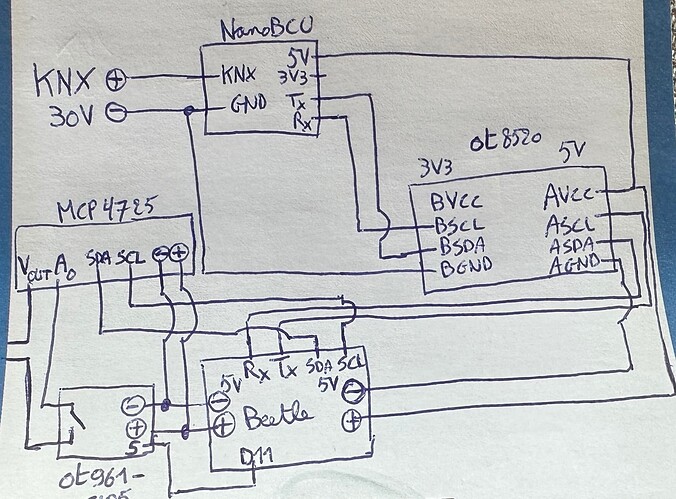 NanoBCU
KNX +
30V -
KNX
GND
5V
3V3
Tx
Rx
ot8520
3V3
5V
BVCC
BSCL
BSDA
BGND
AVCC
ASCL
ASDA
AGND
MCP4725
VOUT A0 SDA SCL - +
Rx Tx SDA SCL
5V
5V
-
+
Beetle
-
+
D11
-
+
S
ot961-